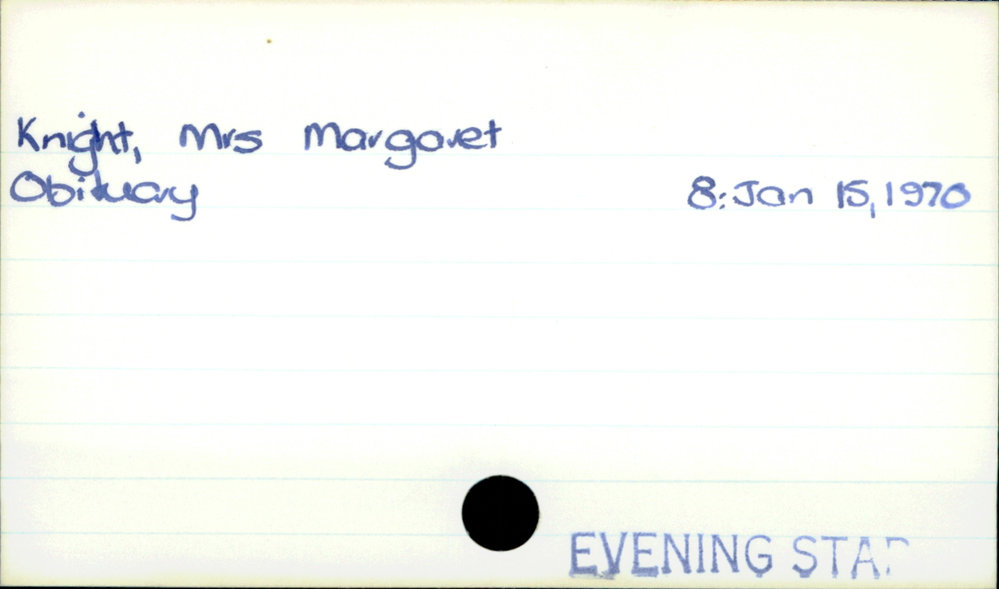 Knight, Mrs Margaret
Obituary 8: Jan 15, 1970
EVENING STAR